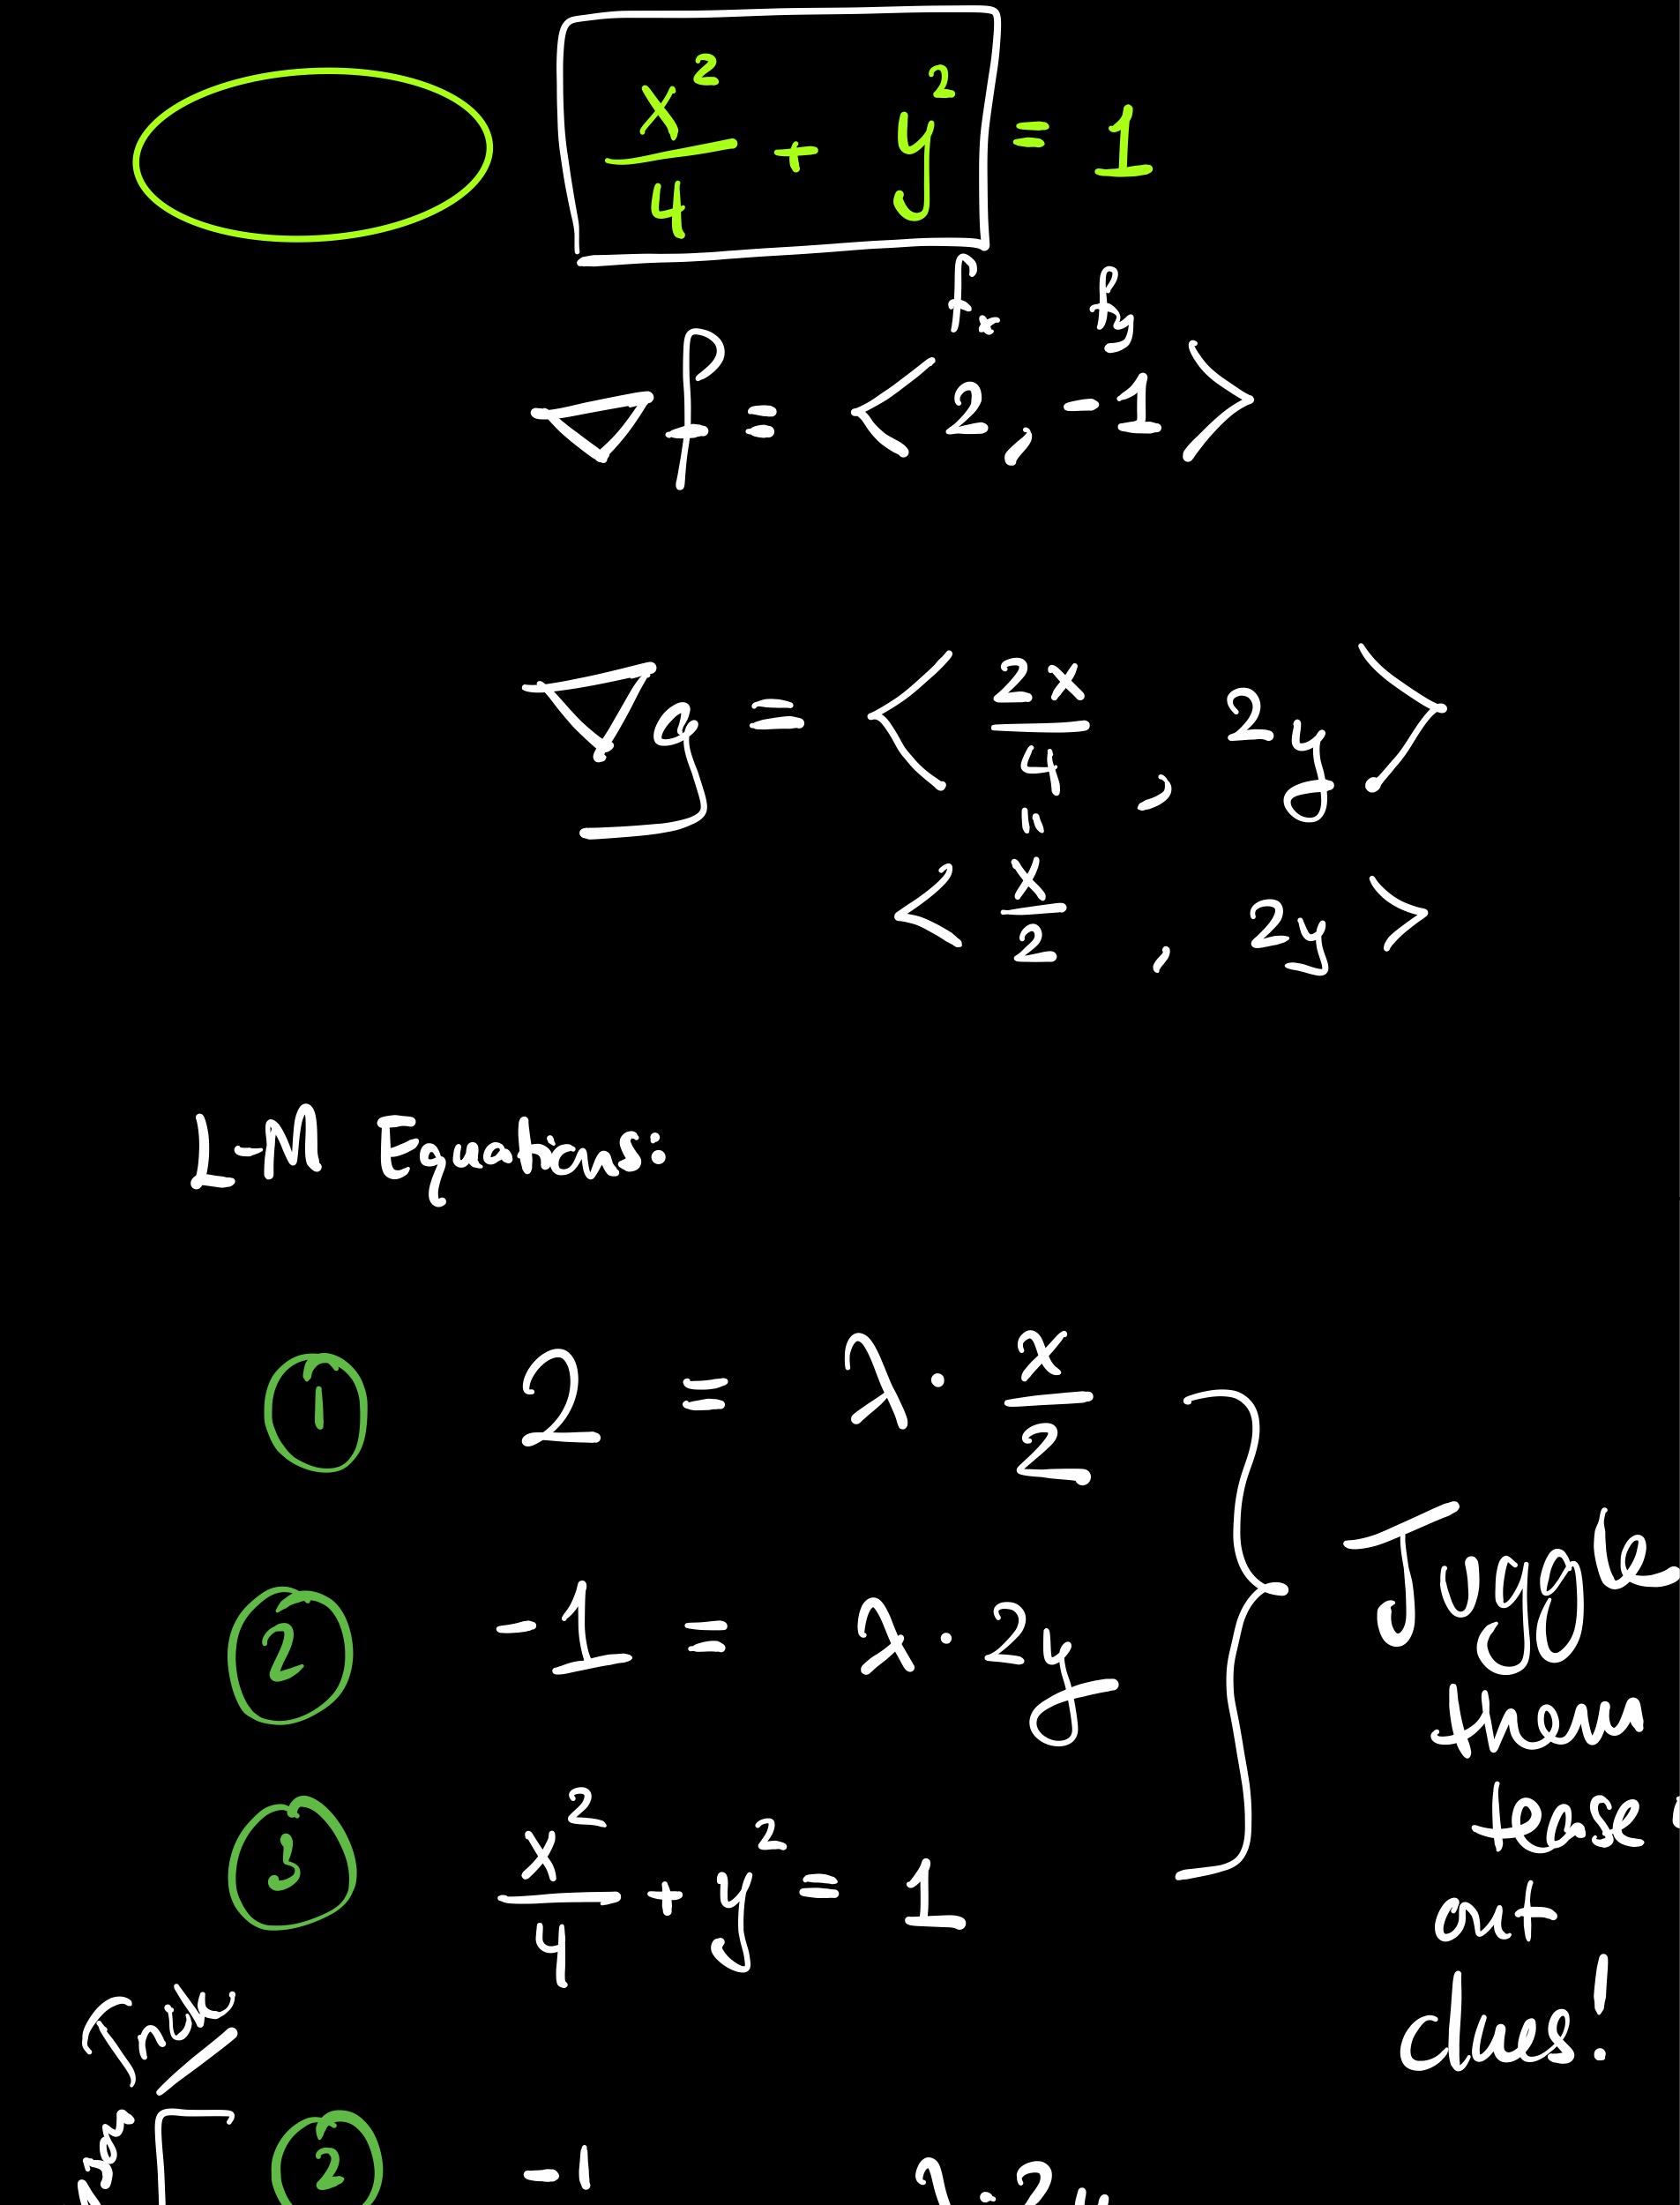 x²/4 + y² = 1
fx fy
∇f = <2, -1>
∇g = <2x/4, 2y>
"
<x/2, 2y>
L-M Equations:
1 2 = λ · x/2
2 -1 = λ · 2y
3 x²/4 + y² = 1
Juggle
them
tease
out
clues!
Trick
2 -1 λ · 2y